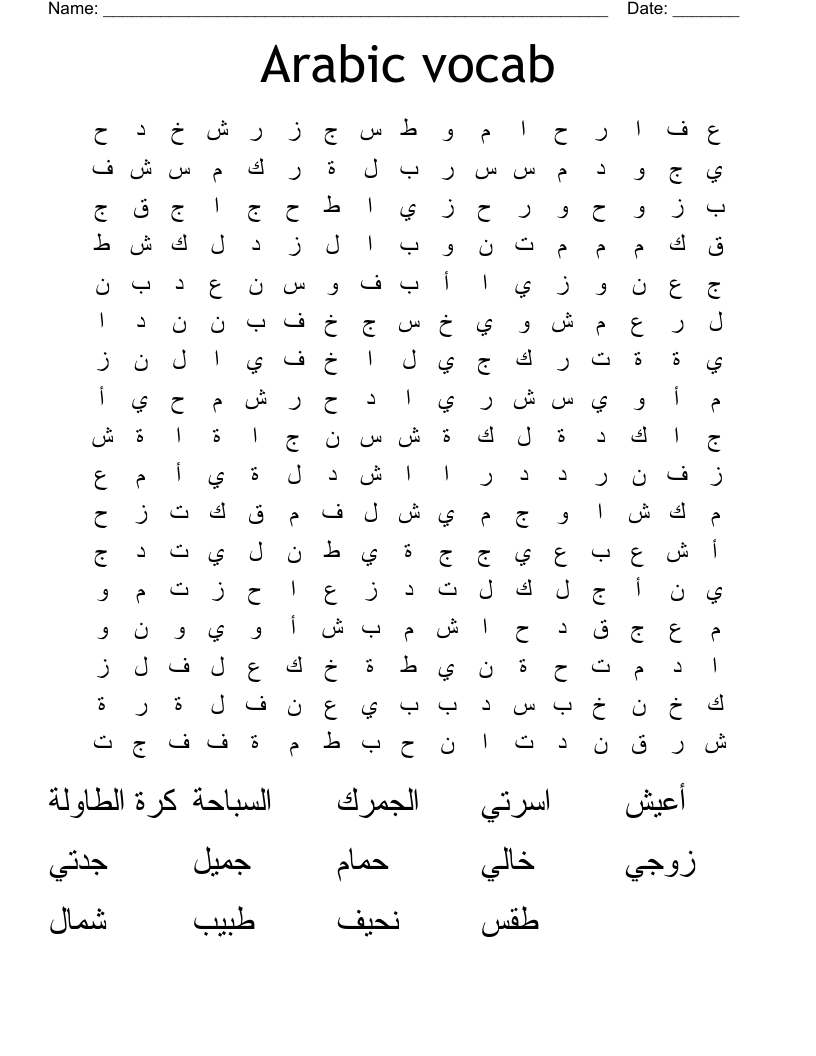 Name: _____________________________________________________ Date: _______
Arabic vocab
ع ف ا ر ح ا م و ط س ج ز ر ش خ د ح
ي ج و د م س س ر ب ل ة ر ك م س ش ف
ب ز و ح و ر ح ز ي ا ط ح ج ا ج ق ج
ق ك م م م ت ن و ب ا ل ز د ل ك ش ط
ج ع ن و ز ي ا أ ب ف و س ن ع د ب ن
ل ر ع م ش و ي خ س ج خ ف ب ن ن د ا
ي ة ة ت ر ك ج ي ل ا خ ف ي ا ل ن ز
م أ و ي س ش ر ي ا د ح ر ش م ح ي أ
ج ا ك د ة ل ك ة ش س ن ج ا ة ا ة ش
ز ف ن ر د د ر ا ا ش د ل ة ي أ م ع
م ك ش ا و ج م ي ش ل ف م ق ك ت ز ح
أ ش ع ب ع ي ج ج ة ي ط ن ل ي ت د ج
ي ن أ ج ل ك ل ت د ز ع ا ح ز ت م و
م ع ج ق د ح ا ش م ب ش أ و ي و ن و
ا د م ت ح ة ن ي ط ة خ ك ع ل ف ل ز
ك خ ن خ ب س د ب ب ي ع ن ف ل ة ر ة
ش ر ق ن د ت ا ن ح ب ط م ة ف ف ج ت
أعيش اسرتي الجمرك السباحة كرة الطاولة
زوجي خالي حمام جميل جدتي
طقس نحيف طبيب شمال